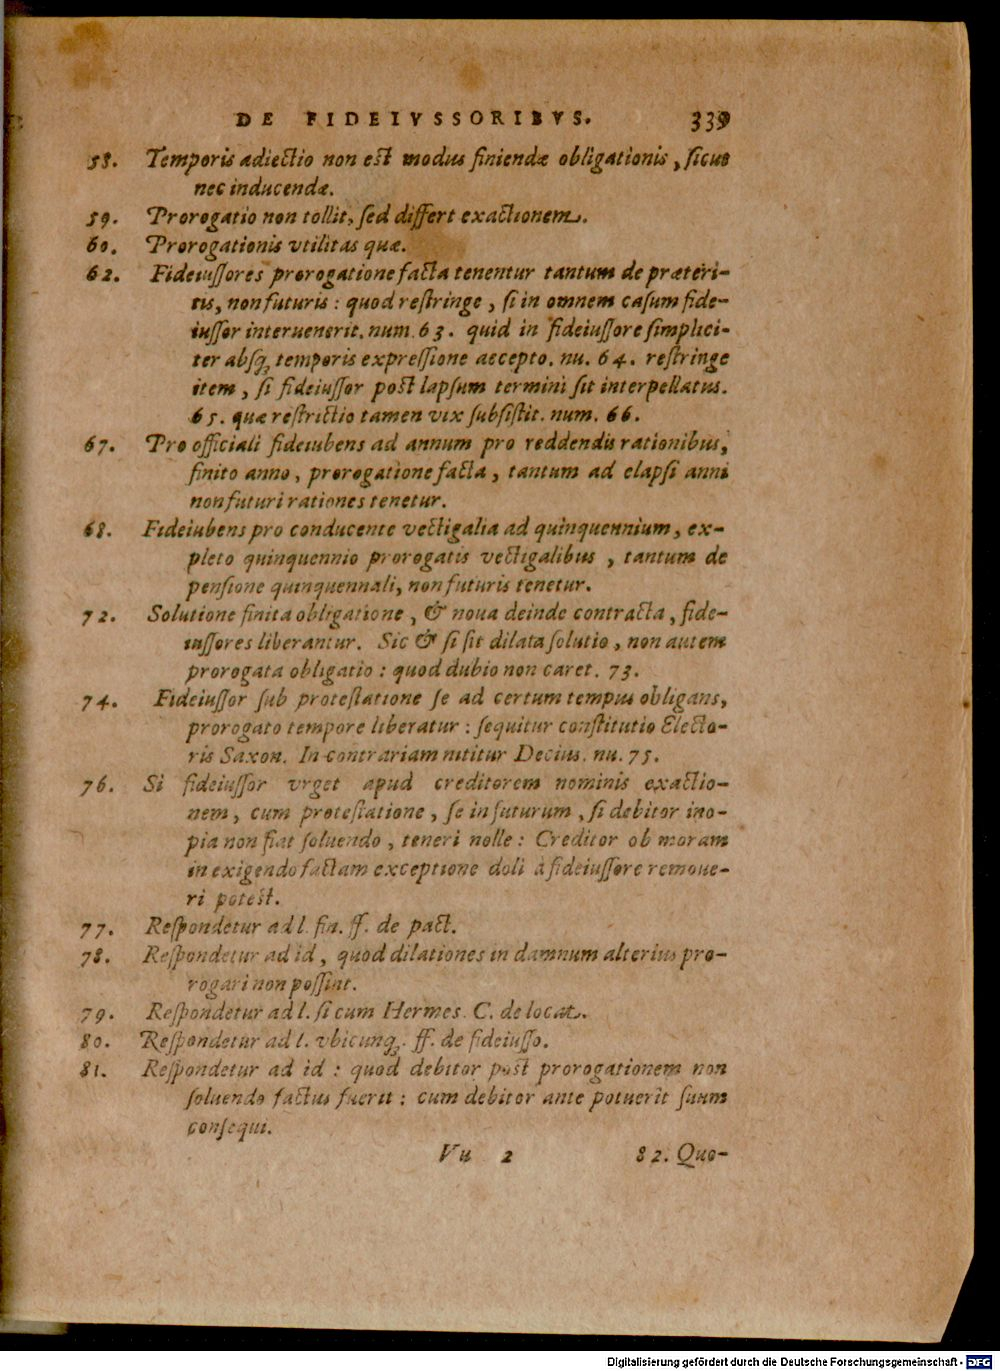 DE FIDEIVSSORIBVS. 339
58. Temporis adiectio non est modus finiendæ obligationis, sicut
nec inducendæ.
59. Prorogatio non tollit, sed differt exactionem.
60. Prorogationis vtilitas quæ.
62. Fideiussores prorogatione facta tenentur tantum de præteri-
tis, non futuris: quod restringe, si in omnem casum fide-
iussor interuenerit. num. 63. quid in fideiussore simplici-
ter absq; temporis expressione accepto. nu. 64. restringe
item, si fideiussor post lapsum termini sit interpellatus.
65. quæ restrictio tamen vix subsistit. num. 66.
67. Pro officiali fideiubens ad annum pro reddendis rationibus,
finito anno, prorogatione facta, tantum ad elapsi anni
non futuri rationes tenetur.
68. Fideiubens pro conducente vectigalia ad quinquennium, ex-
pleto quinquennio prorogatis vectigalibus, tantum de
pensione quinquennali, non futuris tenetur.
72. Solutione finita obligatione, & noua deinde contracta, fide-
iussores liberantur. Sic & si sit dilata solutio, non autem
prorogata obligatio: quod dubio non caret. 73.
74. Fideiussor sub protestatione se ad certum tempus obligans,
prorogato tempore liberatur: sequitur constitutio Electo-
ris Saxon. In contrariam nititur Decius. nu. 75.
76. Si fideiussor vrget apud creditorem nominis exactio-
nem, cum protestatione, se in futurum, si debitor ino-
pia non fiat soluendo, teneri nolle: Creditor ob moram
in exigendo factam exceptione doli à fideiussore remoue-
ri potest.
77. Respondetur ad l. fin. ff. de pact.
78. Respondetur ad id, quod dilationes in damnum alterius pro-
rogari non possint.
79. Respondetur ad l. si cum Hermes. C. de locat.
80. Respondetur ad l. vbicunq;. ff. de fideiusso.
81. Respondetur ad id: quod debitor post prorogationem non
soluendo factus fuerit: cum debitor ante potuerit suum
consequi.
Vu 2 82. Quo-
Digitalisierung gefördert durch die Deutsche Forschungsgemeinschaft - DFG